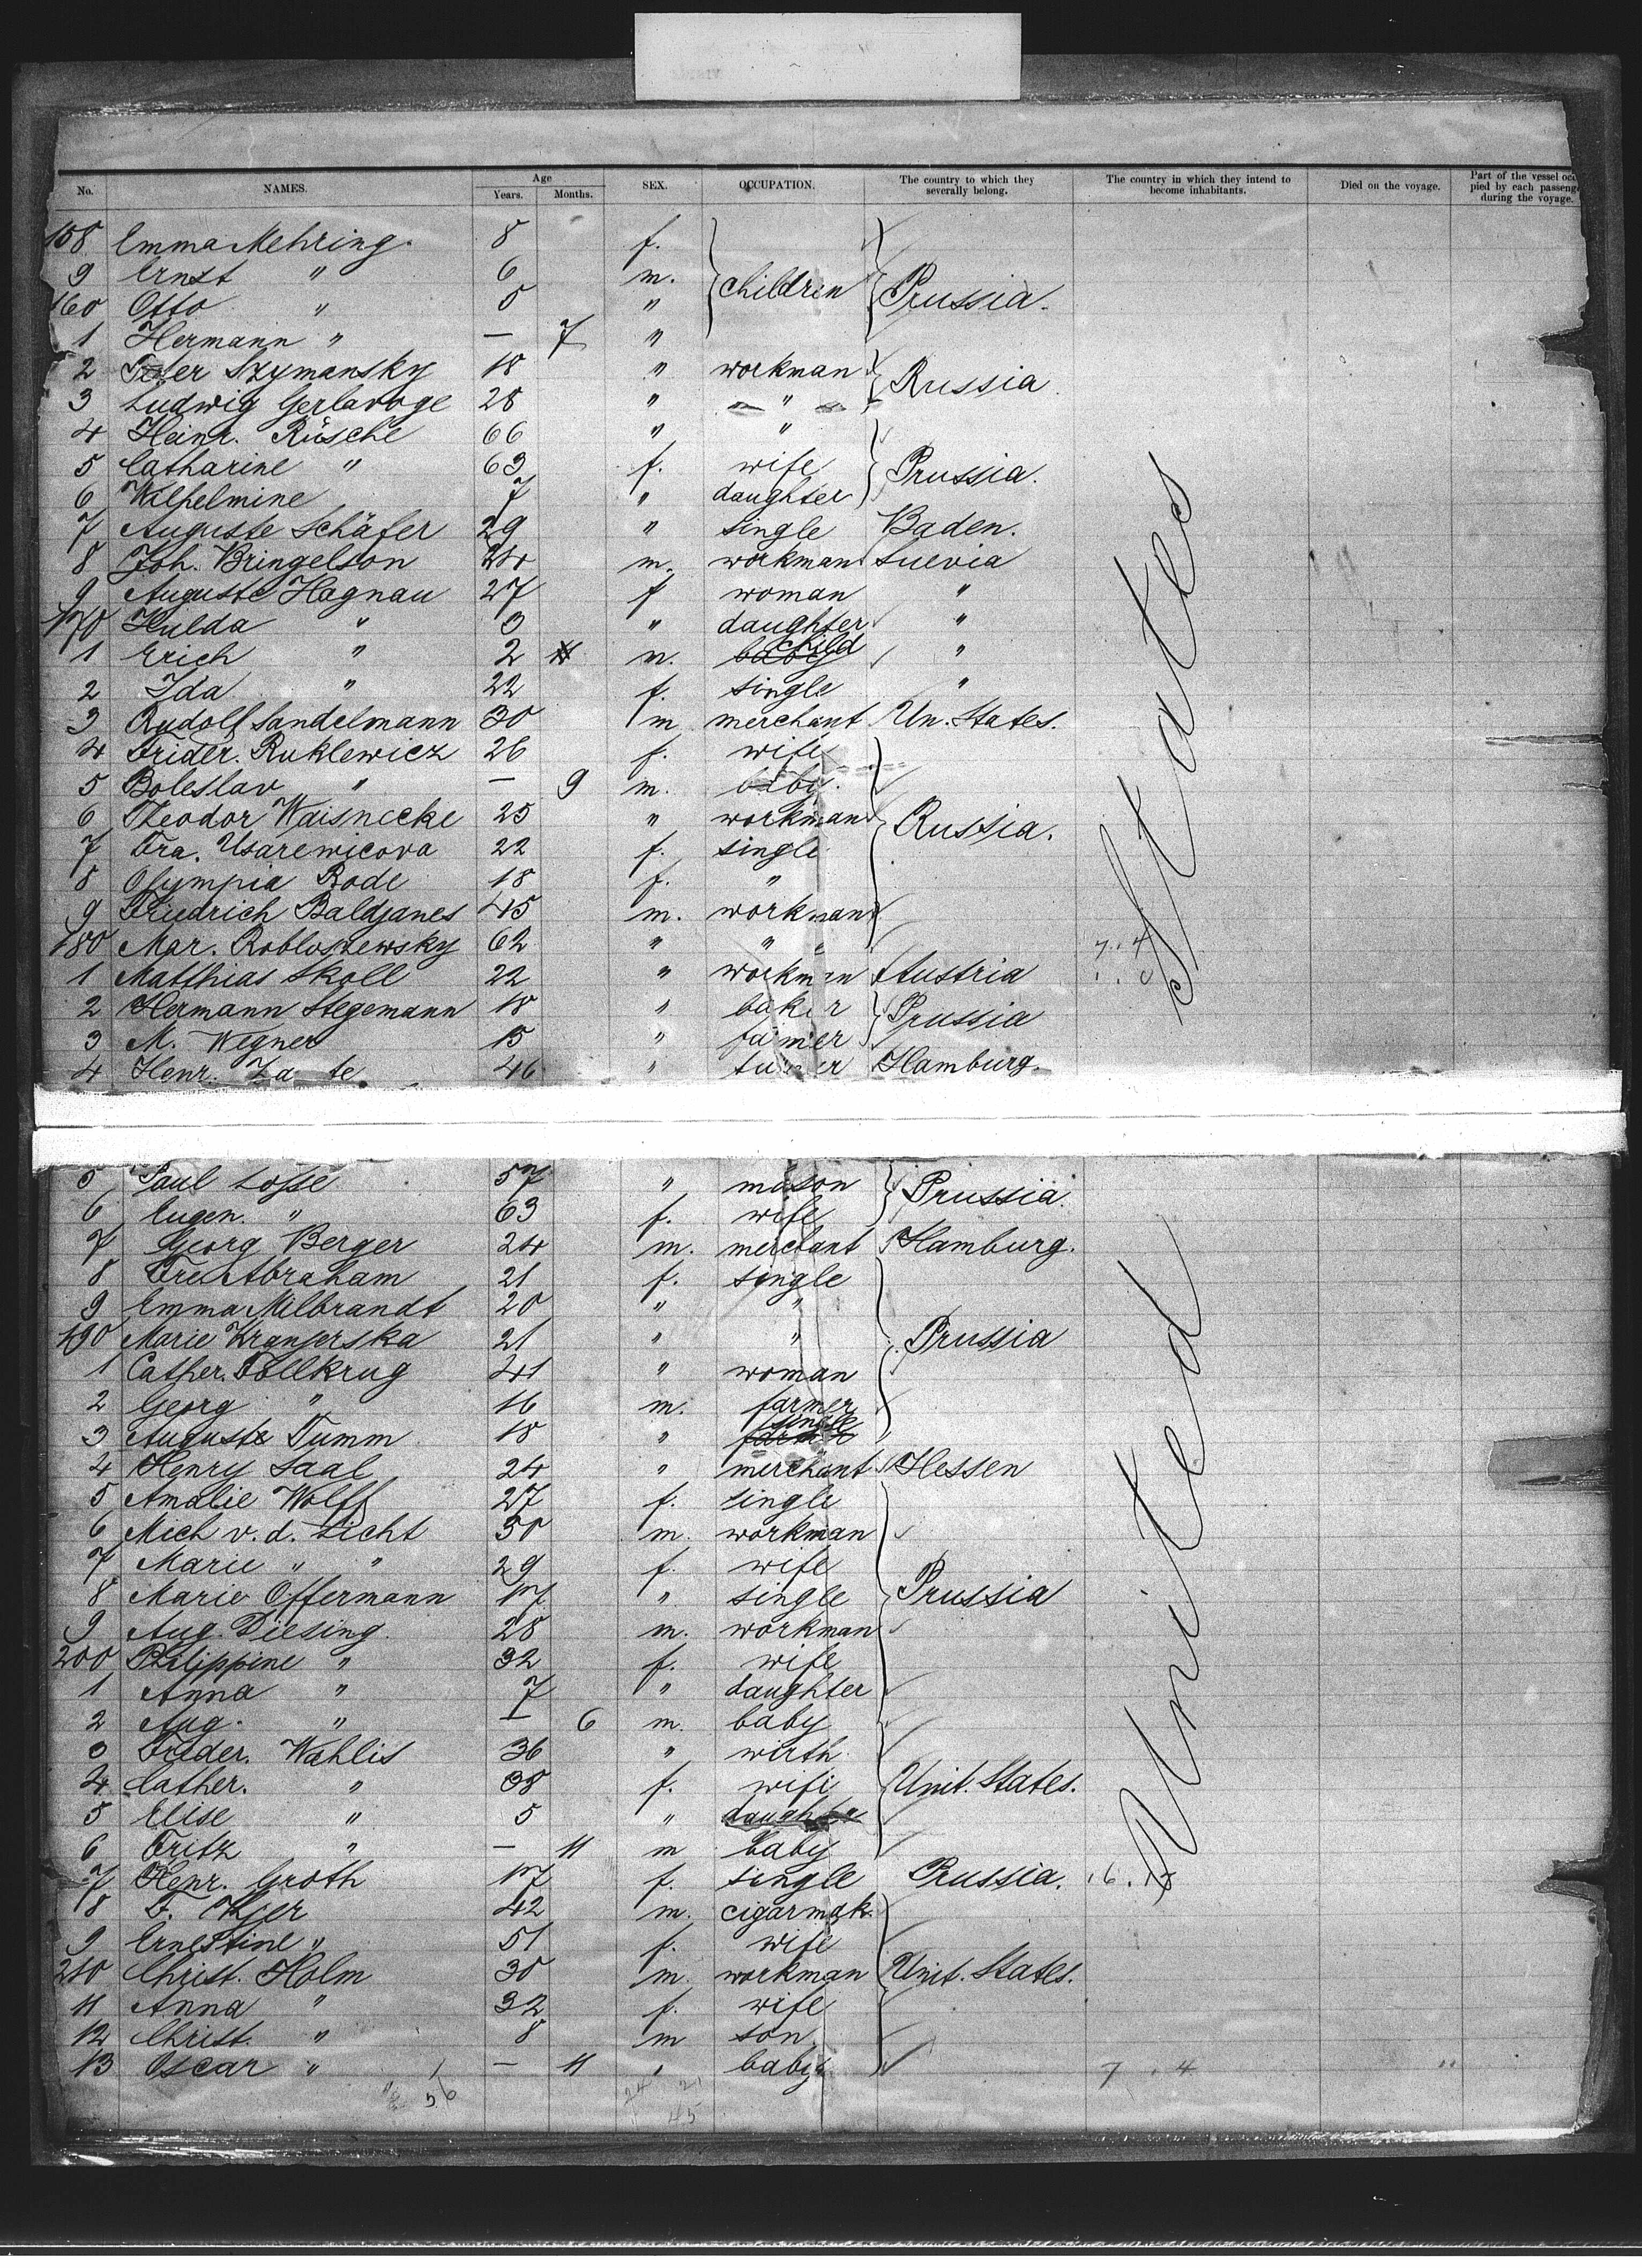 No. NAMES. Age Years. Months. SEX. OCCUPATION. The country to which they severally belong. The country in which they intend to become inhabitants. Died on the voyage. Part of the vessel occupied by each passenger during the voyage.
158 Emma Mehring. 8 f.
9 Ernst " 6 m. children Prussia.
160 Otto " "
1 Hermann " — 7 "
2 Peter Szymansky 18 " workman Russia
3 Ludwig 28 " "
4 Heinr. Rüsche 66 " "
5 Catharine " 63 f. wife Prussia.
6 Wilhelmine 7 " daughter
7 Auguste Schäfer 29 " single Baden.
8 Joh. Bringelson 24 m. workman Suevia
9 Auguste Hagnau 27 f woman "
170 Hulda " 3 " daughter "
1 Erich " 2 m. child "
2 Ida " 22 f. single "
3 Rudolf Sandelmann 30 m merchant Un. States.
4 Frider. Ruklewicz 26 f. wife
5 Boleslav " — 9 m. baby.
6 Theodor Waisnecke 25 " workman Russia.
7 Fra. Usarewicova 22 f. single
8 Olympia Rode 18 f. "
9 Friedrich Baldjanes 45 m. workman
180 Mar. 62 " " 7 . 4
1 Matthias Skoll 22 " workman Austria
2 Hermann Stegemann 18 " baker Prussia
3 M. Wegner 15 " farmer
4 Henr. 46 " Hamburg.
5 Paul Losse 57 " mason Prussia.
6 Eugen. " 63 f. wife
7 Georg Berger 24 m. merchant Hamburg.
8 Fre. Abraham 21 f. single
9 Emma Milbrandt 20 " "
190 Marie 21 " " Prussia
1 Cather. Follkrug 41 " woman
2 Georg " 16 m. farmer
3 Auguste Tumm 18 " single
4 Henry Saal 24 " merchant Hessen
5 Amalie Wolff 27 f. single
6 Mich v. d. Licht 30 m. workman
7 Marie " " 29 f. wife
8 Marie Offermann 17 " single Prussia
9 Aug. Diesing. 28 m. workman
200 Philippine " 32 f. wife
1 Anna " 7 " daughter
2 Aug. " — 6 m. baby
3 Frieder. Wahlis 36 " wirth.
4 Cather. " 38 f. wife Unit. States.
5 Elise " 5 " daughter
6 Fritz " — 11 m baby
7 Henr. Groth 17 f. single Prussia.
8 F. 42 m. cigarmak.
9 Ernestine " 51 f. wife
210 Christ. Holm 30 m. workman Unit. States.
11 Anna " 32 f. wife
12 Christ. " 8 m son.
13 Oscar " — 11 " baby 7 . 4
56 24 21
45
United States